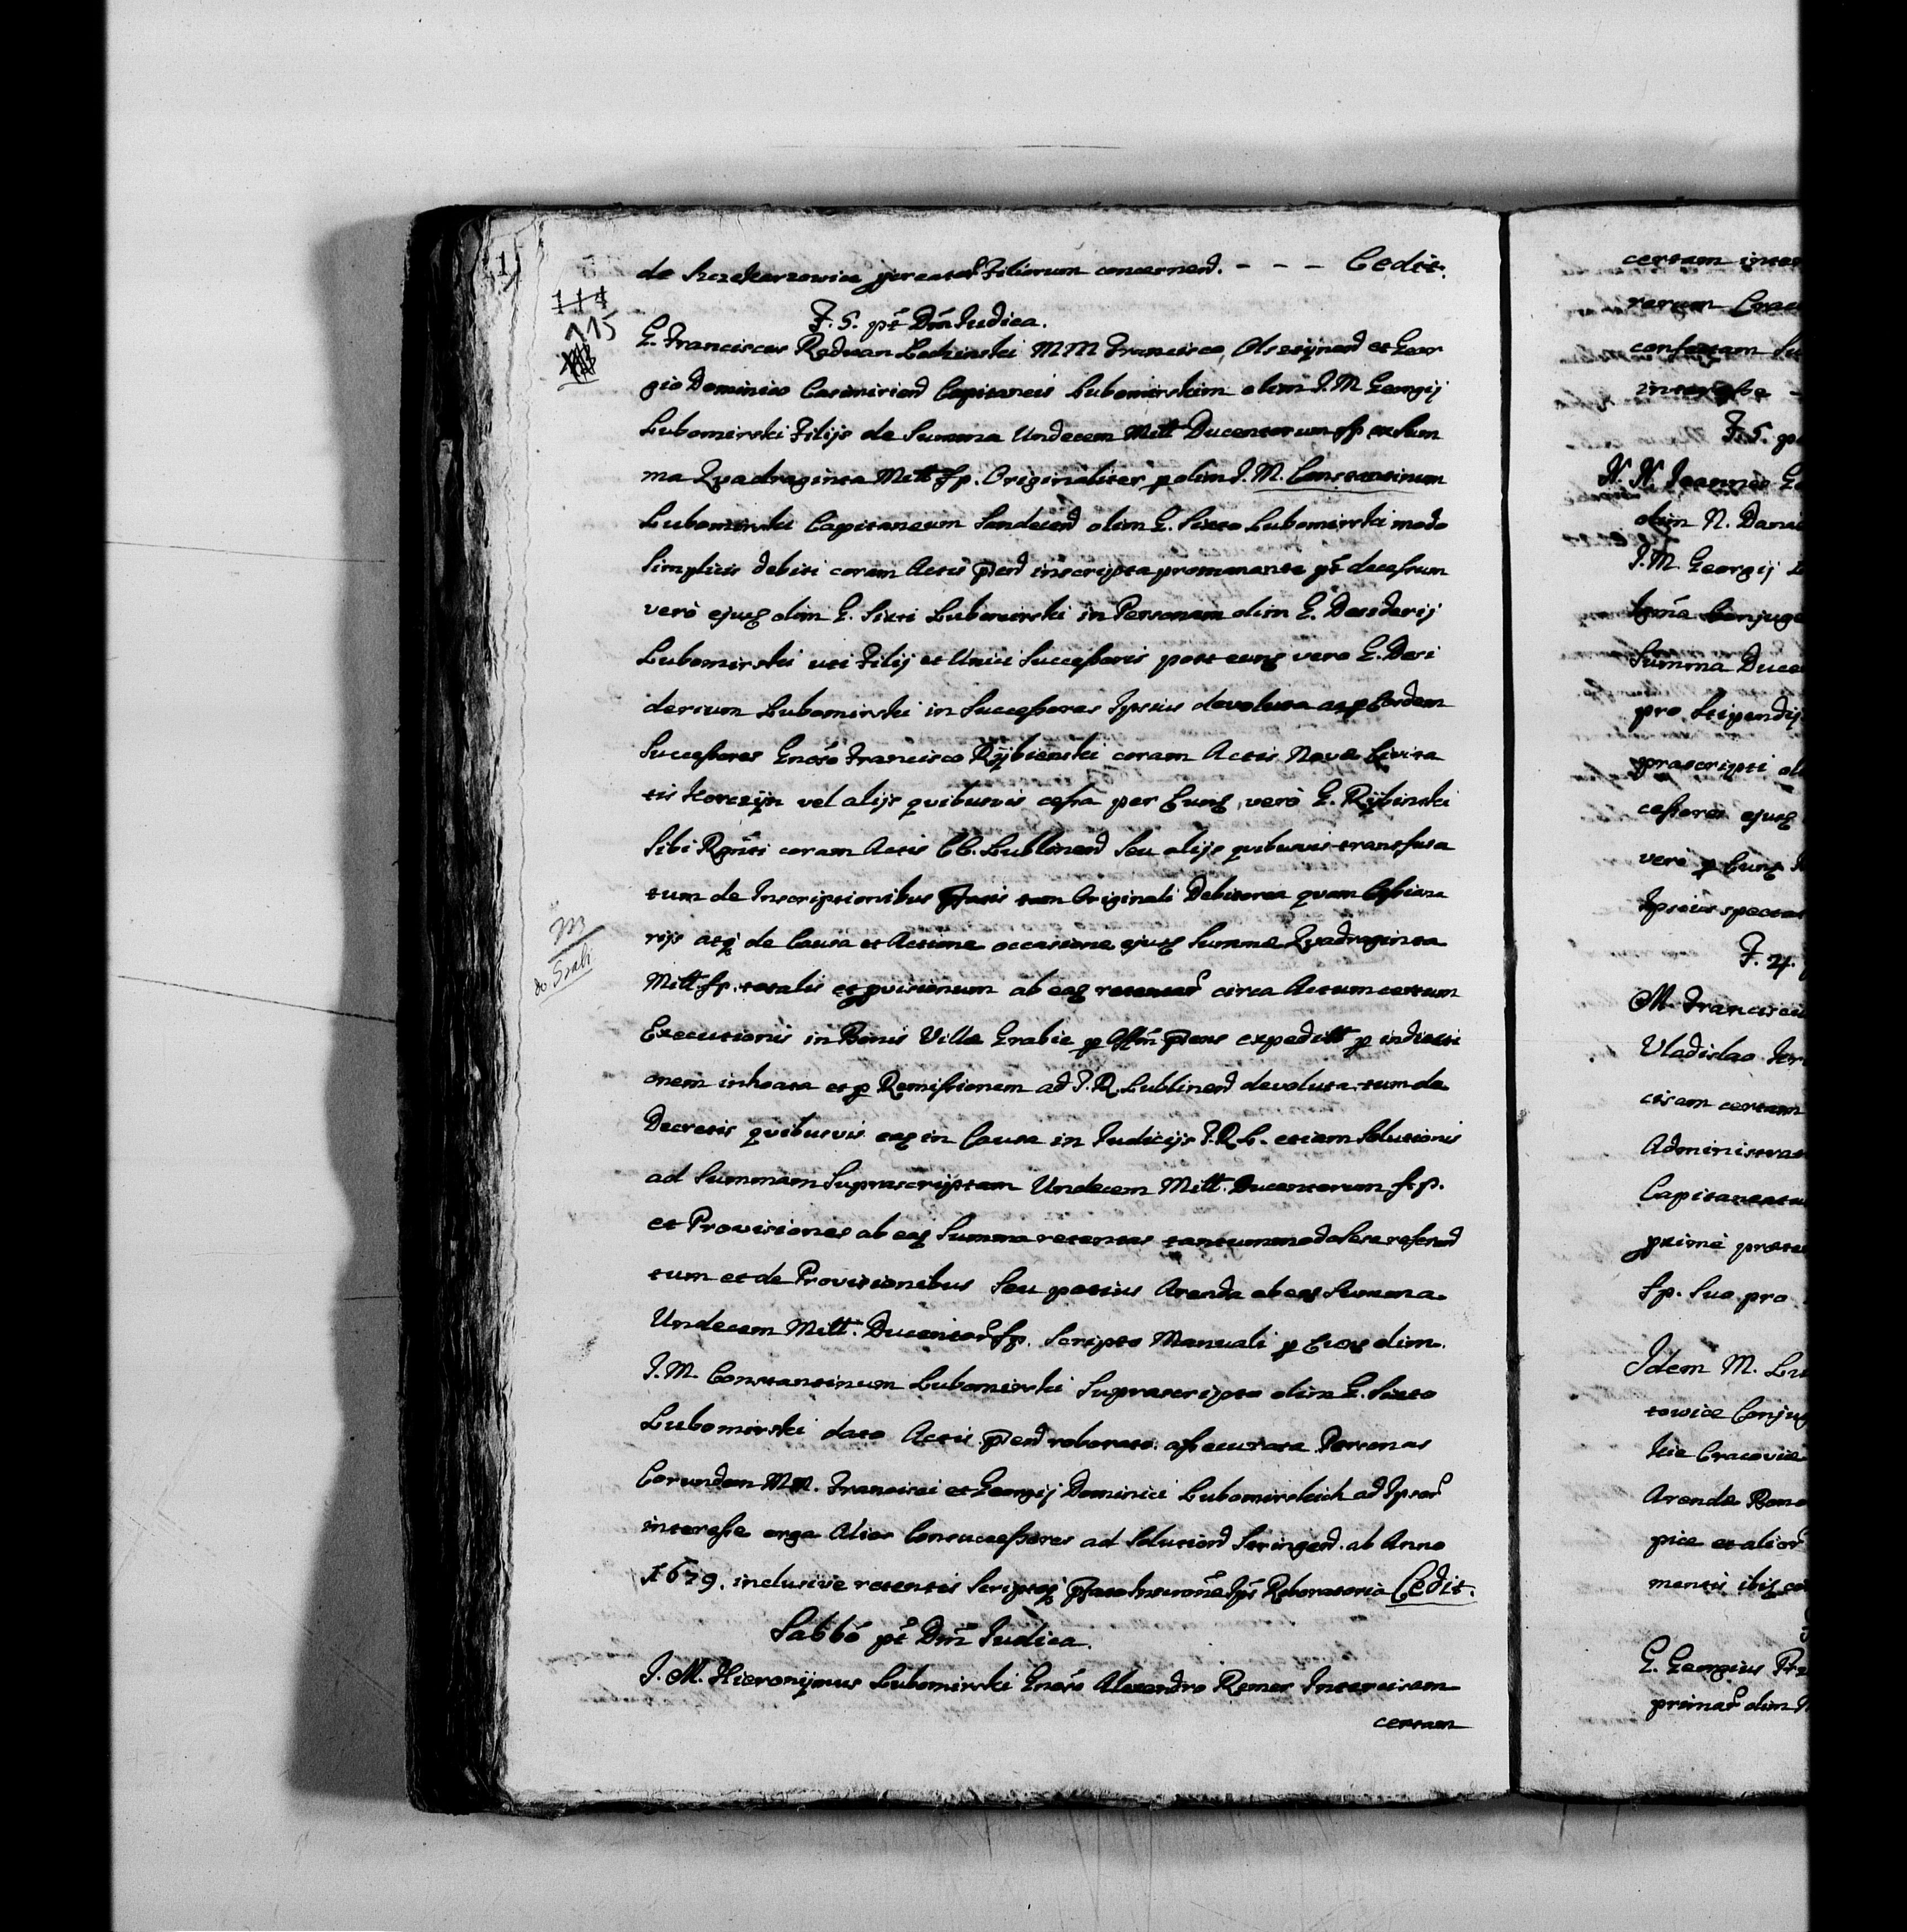 114
115
de Szczekarzowice procreator Filiorum concernend. - - - Cedit.
F. 5. pt Dm̃ Iudica.
G. Franciscus Radwan Lodzinski MM Francisco, Olsztijnend et Geor
gio Dominico Casimiriend Capitaneis Lubomirskim olim I. M Georgij
Lubomirski Filijs de Summa Undecem Mill Ducentorum fp ex Sum
ma Quadraginta Mill fp. Originaliter p olim I. M. Constantinum
Lubomirski Capitaneum Sandecend olim G. Sixto Lubomirski modo
Simplicis debiti coram Actis p̃end inscripta promananta pt decessum
verò ejusq olim G. Sixti Lubomirski in Personam olim G. Desiderij
Lubomirski uti Filij et Unici Successoris post eunq vero G. Desi
derium Lubomirski in Successores Ipsius devoluta ac p Eosdem
Successores Gnõso Francisco Rÿbienski coram Actis Novæ Civita
tis Korczÿn vel alijs quibusvis cessa per Eunq verò G. Rÿbinski
Sibi Rgñti coram Actis CC. Lublinend Seu alijs quibusvis transfusa
tum de Inscriptionibus p̃fatis tam Originali Debitorea quam Cessiona
rijs atq de Causa et Actione occasione ejusq Summæ Quadraginta
Mill. fp. totalis et pvisionum ab eaq retentar circa Actum certum
Executionis in Bonis Villæ Grabie p Offm̃ p̃ens expeditt p indicti
onem inhoata et p Remissionem ad I. R. Lublinend devoluta tum de
Decretis quibusvis eaq in Causa in Iudicijs I. R. L. etiam Solutionis
ad Summam Suprascriptam Undecem Mill. Ducentorum fp.
et Provisiones ab eaq Summa retentas tantummodo sese referend
tum et de Provisionibus Seu potius Arenda ab eaq Summa
Undecem Mill. Ducentor fp. Scripto Manuali p Eunq olim
I. M. Constantinum Lubomirski Suprascripto olim G. Sixto
Lubomirski dato Actis p̃end roborato assecurata Personas
Eorundem MM. Francisci et Georgij Dominici Lubomirskich ad Ipsor
interesse erga Alios Consuccessores ad Solutiond Stringend. ab Anno
1679. inclusive retentis Scriptoq p̃fato Roboratoria Cedit.
Sabbõ pt Dm̃ Iudica.
I. M. Hieronÿmus Lubomirski Gnõso Alexandro Remer Intercisam
certam
certam inter
rerum Crac
intersse
F. 5. p
N. N. Joannes G
olim N. Danie
I. M. Georgij L
Conjuge
Summa Duce
pro Stipendij
præscripti ol
cessores ejusq
vero p Eunq
Ipsius spectan
F. 4.
M. Franciscus
Vladislao
cisam certam
Administra
Capitaneatu
proximè præte
fp. Sua pro
Idem M. Lu
towice Conju
Cracoviæ
Arendæ Bono
pice et alior
mentis ibiq co
G. Georgius Prz
primar olim